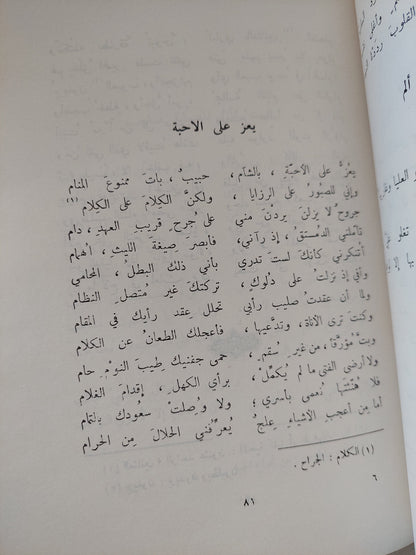 يعز على الاحبة
يَعزُّ على الأحبّةِ ، بالشآم ، حبيبُ ، باتَ ممنوعَ المنام
وإني للصبورُ على الرزايا ، ولكنَّ الكِلامَ على الكِلامِ (١)
جروحٌ لا يزلنَ يَرِدْنَ مني على جُرحٍ قريبِ العهدِ ، دام
تأملني الدمستقُ ، إذ رآني ، فأبصرَ صيغةَ الليثِ ، الهمام
أتنكرني كأنك لستَ تدري بأني ذلك البطلُ ، المحامي
وأني إذ نزلتُ على دلوكٍ ، تركتكَ غيرَ مُتصلِ النظام
ولما أن عقدتُ صليبَ رأيي تحلل عِقدُ رأيك في المقام
وكنت ترى الأناةَ ، وتدّعيها ، فأعجلك الطعانُ عن الكلام
وبتَّ مؤرّقاً ، من غيرِ سُقمٍ ، حمى جفنيك طيبَ النومِ حام
ولا أرضى الفتى ما لم يُكمِّلْ ، برأيِ الكهلِ ، إقدامَ الغلام
فلا هُنّئتَها نُعمى بأسري ؛ ولا وُصلتْ سعودُك بالتمام
أما من أعجبِ الأشياءِ عِلجٌ يُعرِّفني الحلالَ مِن الحرام
(١) الكلام : الجراح .
٦
٨١
القلوب
ألم